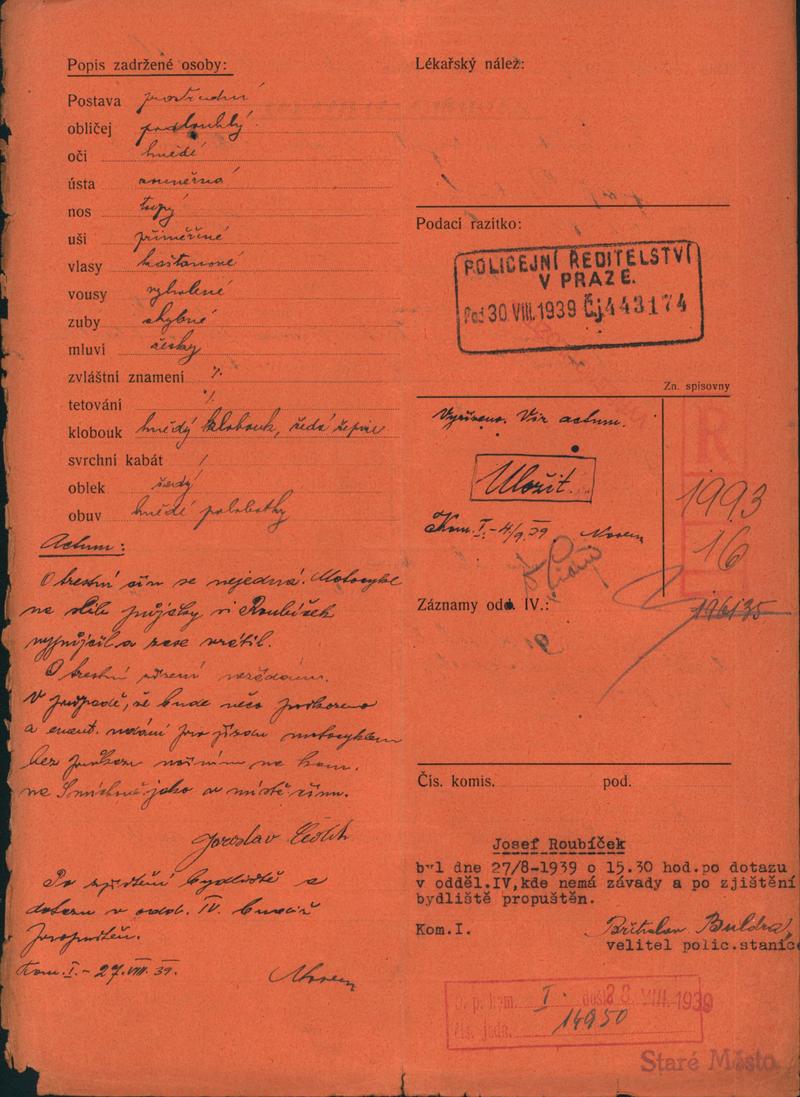 Popis zadržené osoby:
Postava prostřední
obličej podlouhlý
oči hnědé
ústa souměrná
nos tupý
uši přiměřené
vlasy kaštanové
vousy vyholené
zuby chybné
mluví česky
zvláštní znamení %
tetování %
klobouk hnědý klobouk, šedá čepice
svrchní kabát /
oblek šedý
obuv hnědé polobotky
Actum:
O trestní čin se nejedná. Motocykl
na slib půjčky si Roubíček
vypůjčil a zase vrátil.
O trestní řízení nežádám.
V případě, že bude něco poškozeno
a event. udání pro jízdu motocyklem
bez průkazu na kom.
na Smíchově jako v místě činu.
Jaroslav
Po zjištění bydliště a
dotazu v odd. IV. Buačiž
propuštěn.
Kom. I. - 27. VIII. 39.
Lékařský nález:
Podací razítko:
POLICEJNÍ ŘEDITELSTVÍ
V PRAZE.
Pod 30. VIII. 1939 Čj 443174
Zn. spisovny
Vyřízeno. Viz actum.
R
Uložit.
1993
Kom. I. - 4/9. 39.
16
Záznamy odd. IV.:
196135
Čís. komis. pod.
Josef Roubíček
byl dne 27/8-1939 o 15.30 hod.po dotazu
v odděl.IV,kde nemá závady a po zjištění
bydliště propuštěn.
Kom.I. Břetislav Buldra,
velitel polic.stanice
kom. I. došlo 28. VIII. 1939
čís. jedn. 14950
Staré Město